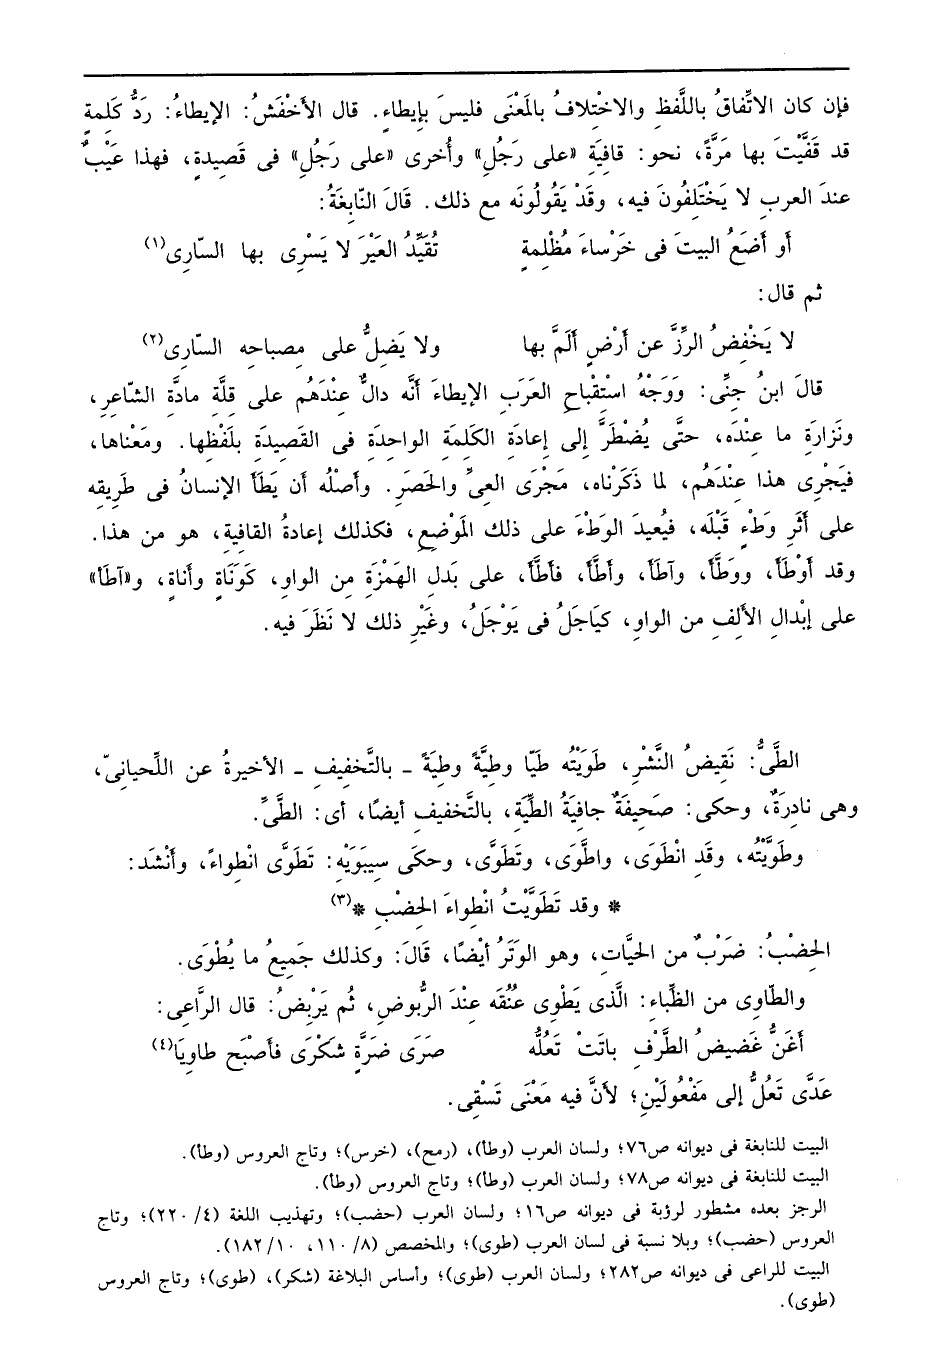 فإن كان الاتِّفاقُ باللَّفظِ والاخْتِلافُ بالمَعْنَى فليسَ بإيطاءٍ. قال الأخْفَشُ: الإيطاءُ: رَدُّ كَلمةٍ
قد قَفَّيْتَ بها مَرَّةً، نحو: قافِيَة «على رَجُلِ» وأُخرى «على رَجُلِ» فى قَصِيدةٍ، فهذا عَيْبٌ
عندَ العربِ لا يَخْتَلِفُونَ فيه، وقَدْ يَقُولُونَه مع ذلك. قَالَ النَّابِغَةُ:
أو أضَعُ البيتَ فى خَرْساءَ مُظْلِمةٍ تُقَيِّدُ العَيْرَ لا يَسْرِى بها السّارِى(١)
ثم قال:
لا يَخْفِضُ الرِّزَّ عن أَرْضٍ أَلَمَّ بها ولا يَضِلُّ على مِصباحِه السّارِى(٢)
قالَ ابنُ جِنِّى: وَوَجْهُ اسْتِقْباحِ العَرَبِ الإيطاءَ أنَّه دالٌّ عِنْدَهُم على قِلَّةِ مادَّةِ الشّاعرِ،
ونَزارَةِ ما عِنْدَه، حتَّى يُضْطَرَّ إلى إعادَةِ الكَلِمَةِ الواحِدَةِ فى القَصِيدَةِ بلَفْظِها. ومَعْناها،
فيَجْرِى هذا عِنْدَهُم، لما ذَكَرْناه، مَجْرَى العِىِّ والحَصَرِ. وأصلُه أن يَطَأَ الإنسانُ فى طَرِيقِه
على أَثَرِ وَطْءٍ قَبْلَه، فيُعِيدَ الوَطْءَ على ذلك المَوْضِعِ، فكذلك إعادةُ القافِيَةِ، هو من هذا.
وقد أَوْطَأَ، ووَطَّأَ، وآطَأَ، وأَطَّأَ، فأَطَّأَ، على بَدلِ الهَمْزَةِ مِن الواوِ، كَوَنَاةٍ وأناةٍ، و«آطَأَ»
على إبْدالِ الألِفِ من الواوِ، كيَاجَلُ فى يَوْجَلُ، وغَيْرِ ذلك لا نَظَرَ فيه.
الطَّىُّ: نَقِيضُ النَّشْرِ، طَوَيْتُه طَيّا وطِيَّةً وطِيَةً ـ بالتَّخفِيفِ ـ الأخيرةُ عن اللِّحيانىّ،
وهى نادِرَةٌ، وحكى: صَحِيفَةٌ جافِيَةُ الطِّيَةِ، بالتَّخفيف أيضًا، أى: الطَّىِّ.
وطَوَّيْتُه، وقَدِ انْطَوَى، واطَّوَى، وتَطَوَّى، وحكَى سِيبَوَيْهِ: تَطَوَّى انْطِواءً، وأنْشَد:
* وقد تَطَوَّيْتُ انْطِواءَ الحِضْبِ *(٣)
الحِضْبُ: ضَرْبٌ من الحَيَّاتِ، وهو الوَتَرُ أيْضًا، قَالَ: وكذلك جَمِيعُ ما يُطْوَى.
والطّاوِى من الظِّباءِ: الَّذى يَطْوِى عُنُقَه عِنْدَ الرُّبوضِ، ثم يَرْبِضُ: قال الرَّاعِى:
أغَنُّ غَضِيضُ الطَّرْفِ باتَتْ تَعُلُّه صَرَى ضَرَّةٍ شَكْرَى فأصْبَح طاوِيَا(٤)
عَدَّى تَعُلُّ إلى مَفْعُولَيْنِ؛ لأنَّ فيه مَعْنَى تَسْقِى.
البيت للنابغة فى ديوانه ص٧٦؛ ولسان العرب (وطأ)، (رمح)، (خرس)؛ وتاج العروس (وطأ).
البيت للنابغة فى ديوانه ص٧٨؛ ولسان العرب (وطأ)؛ وتاج العروس (وطأ).
الرجز بعده مشطور لرؤبة فى ديوانه ص١٦؛ ولسان العرب (حضب)؛ وتهذيب اللغة (٤/ ٢٢٠)؛ وتاج
العروس (حضب)؛ وبلا نسبة فى لسان العرب (طوى)؛ والمخصص (٨/ ١١٠، ١٠/ ١٨٢).
البيت للراعى فى ديوانه ص٢٨٢؛ ولسان العرب (طوى)؛ وأساس البلاغة (شكر)، (طوى)؛ وتاج العروس
(طوى).